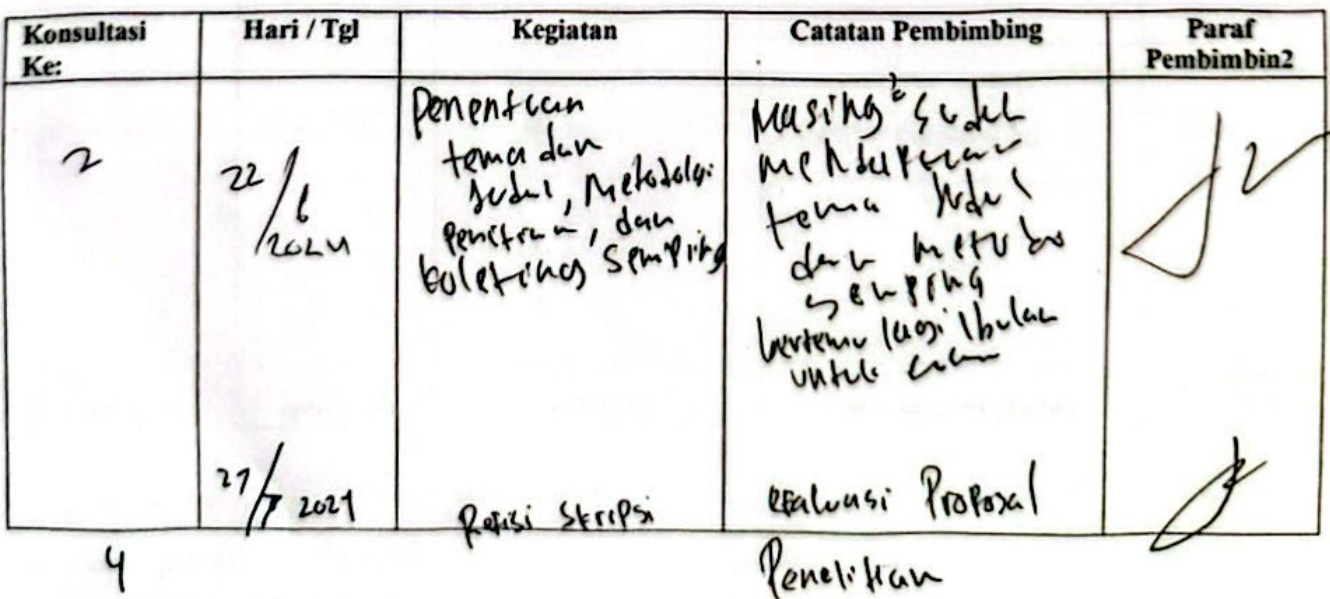 Konsultasi Ke:
Hari / Tgl
Kegiatan
Catatan Pembimbing
Paraf Pembimbin2
2
22/6 2024
penentuan
tema dan
Judul, Metodologi
penelitian, dan
Sempling
Masing² sudah
mendapatkan
tema Judul
dan metode
sempling
bertemu lagi 1 bulan
untuk
27/7 2024
Revisi Skripsi
Evaluasi Proposal
4
Penelitian